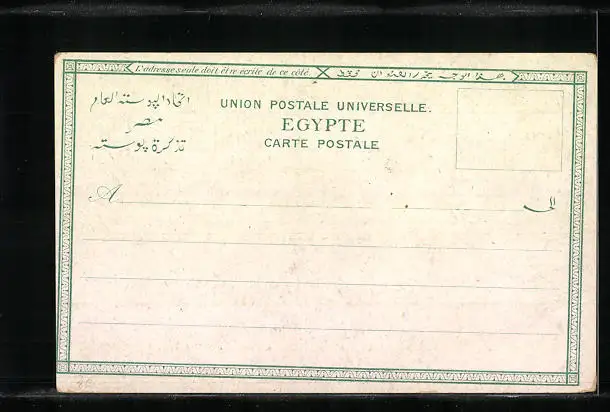 L'adresse seule doit être écrite de ce côté. بهذا الوجه يحرر العنوان فقط
اتحاد البوسته العام
مصر
تذكرة بوسته
UNION POSTALE UNIVERSELLE.
EGYPTE
CARTE POSTALE
A الى